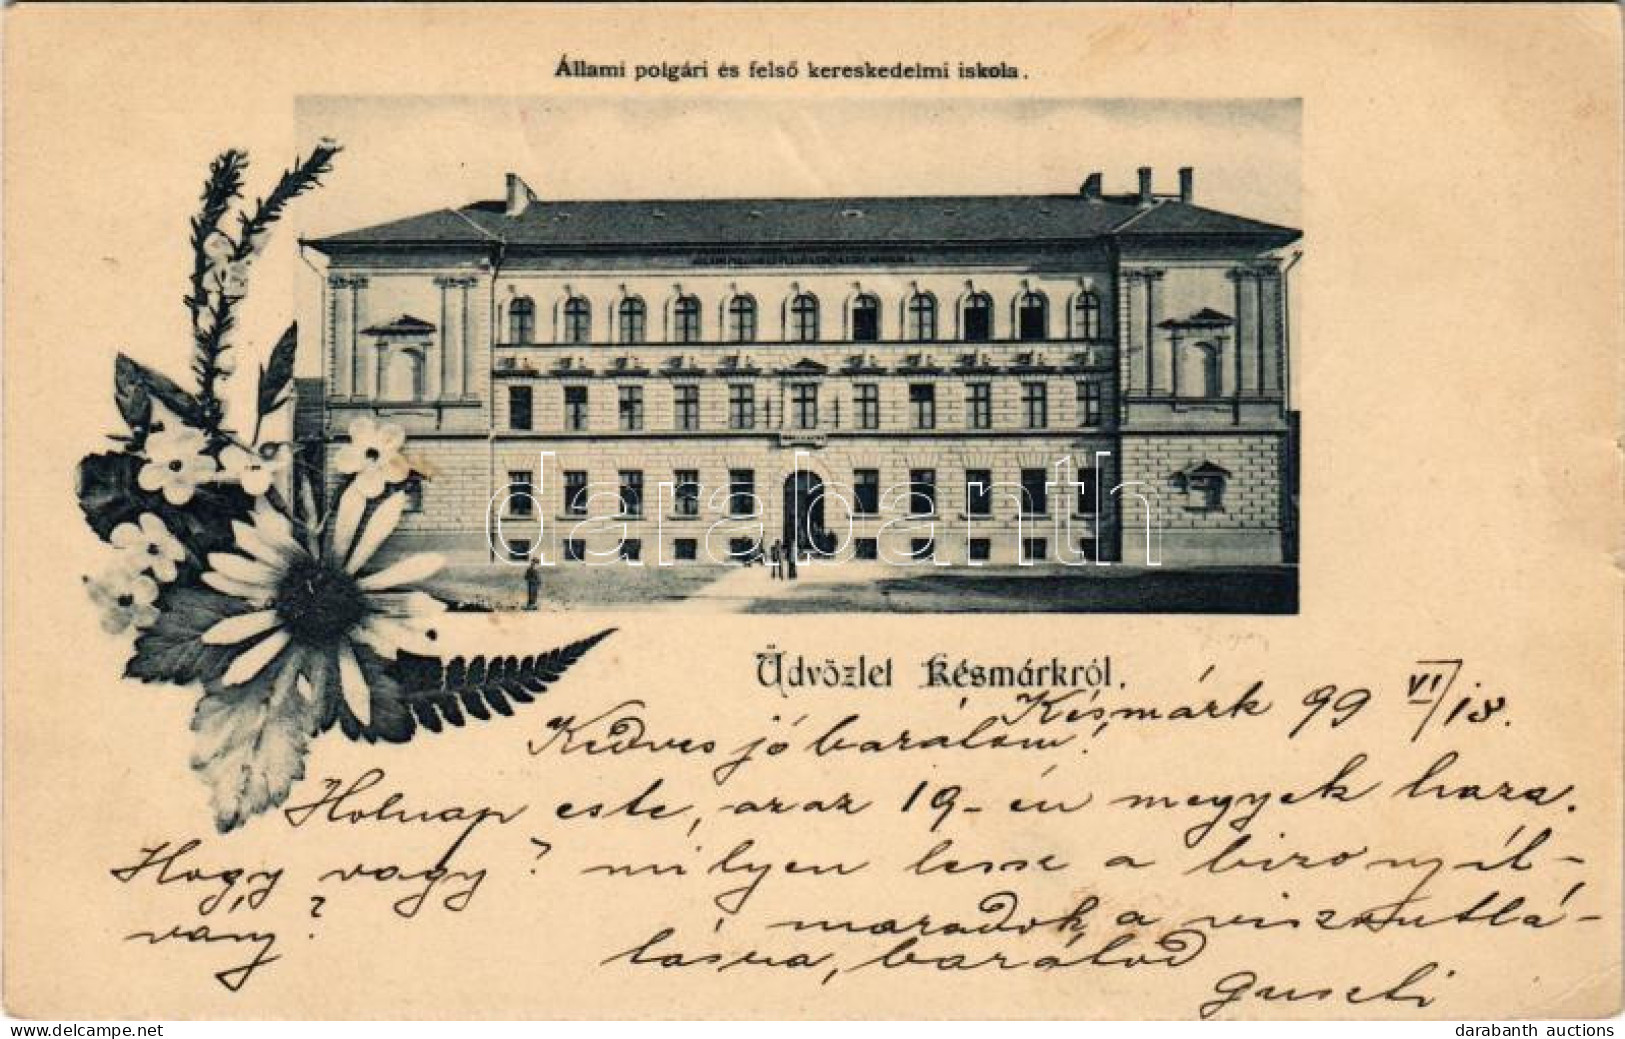 Állami polgári és felső kereskedelmi iskola.
darabanth
Üdvözlet Késmárkról.
Késmárk 99 VI/18.
Kedves jó barátom!
Holnap este, azaz 19-én megyek haza.
Hogy vagy? milyen lessz a bizonyít-
vány?
maradok a viszontlá-
tásra, barátod
Guszti
darabanth auctions